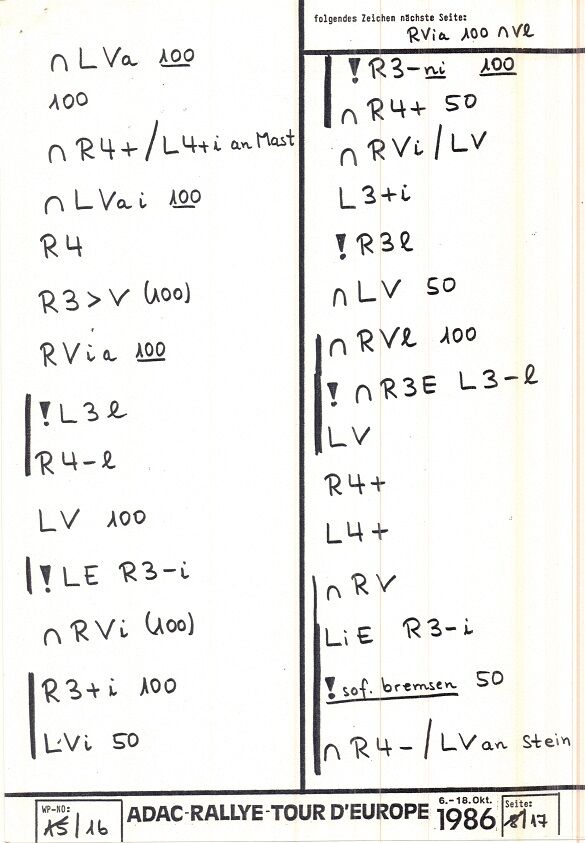 ∩ L Va 100
100
∩ R4+/L4+i an Mast
∩ L Vai 100
R4
R3>V (100)
RVia 100
! L3l
R4-l
LV 100
! LE R3-i
∩ RVi (100)
R3+i 100
LVi 50
folgendes Zeichen nächste Seite:
RVia 100 ∩Vl
! R3-ni 100
∩ R4+ 50
∩ RVi/LV
L3+i
! R3l
∩ LV 50
∩ RVl 100
! ∩ R3E L3-l
LV
R4+
L4+
∩ RV
LiE R3-i
! sof. bremsen 50
∩ R4-/LV an Stein
WP-NO:
15/16
ADAC-RALLYE-TOUR D'EUROPE
6.-18.Okt.
1986
Seite:
8/17